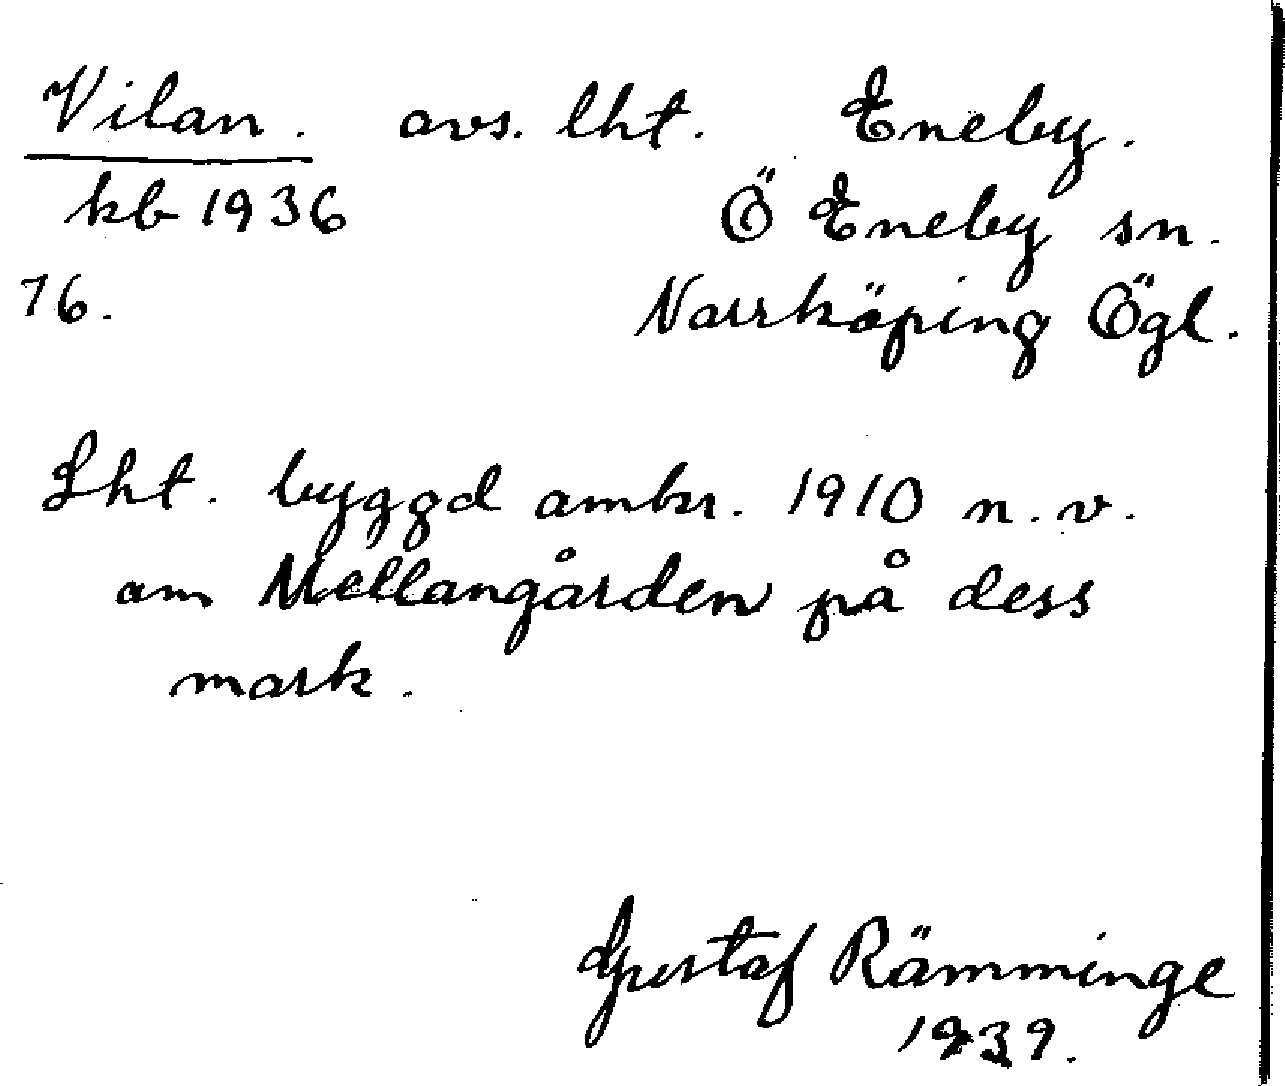 Vilan. avs. lht. Eneby.
kb 1936 Ö Eneby sn.
76. Norrköping Ögl.
Lht. byggd omkr. 1910 n. v.
om Mellangården på dess
mark.
Gustaf Rämminge
1939.